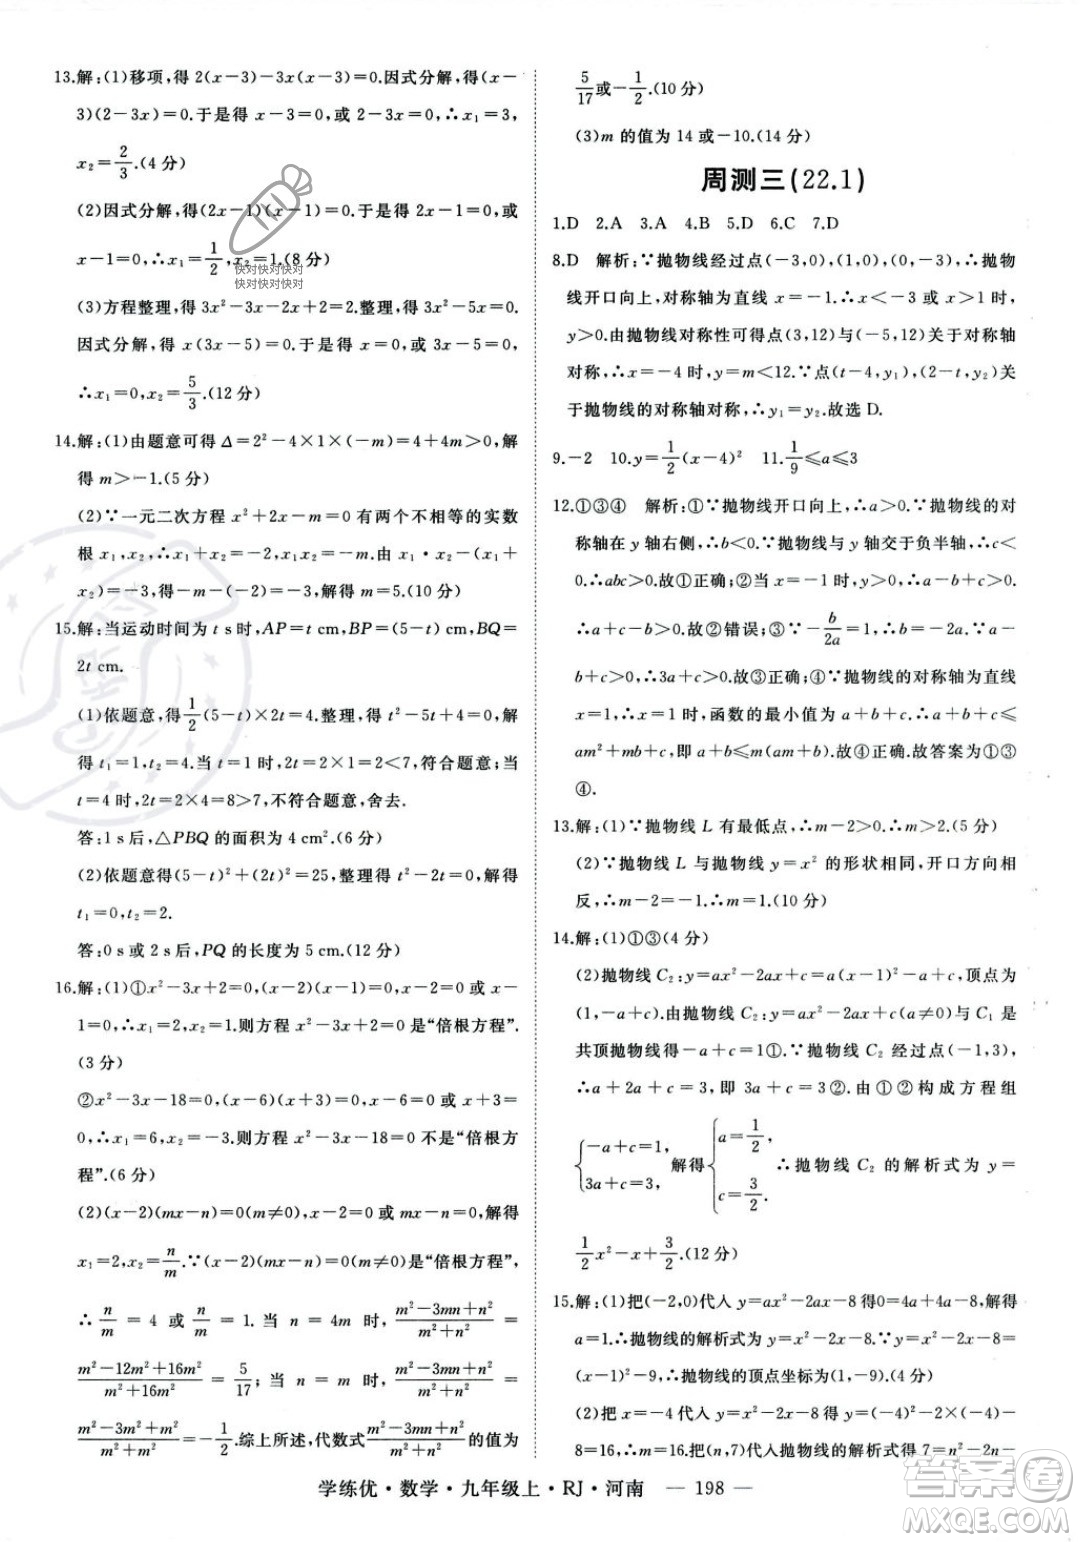 13.解：(1)移项，得 2(x－3)－3x(x－3)＝0.因式分解，得(x－
3)(2－3x)＝0.于是得 x－3＝0，或 2－3x＝0，∴x₁＝3，
x₂＝2/3.(4 分)
(2)因式分解，得(2x－1)(x－1)＝0.于是得 2x－1＝0，或
x－1＝0，∴x₁＝1/2，x₂＝1.(8 分)
(3)方程整理，得 3x²－3x－2x＋2＝2.整理，得 3x²－5x＝0.
因式分解，得 x(3x－5)＝0.于是得 x＝0，或 3x－5＝0，
∴x₁＝0，x₂＝5/3.(12 分)
14.解：(1)由题意可得 Δ＝2²－4×1×(－m)＝4＋4m＞0，解
得 m＞－1.(5 分)
(2)∵一元二次方程 x²＋2x－m＝0 有两个不相等的实数
根 x₁，x₂，∴x₁＋x₂＝－2，x₁x₂＝－m.∵x₁·x₂－(x₁＋
x₂)＝－3，∴得－m－(－2)＝－3，解得 m＝5.(10 分)
15.解：当运动时间为 t s时，AP＝t cm，BP＝(5－t) cm，BQ＝
2t cm.
(1)依题意，得1/2(5－t)×2t＝4.整理，得 t²－5t＋4＝0，解
得 t₁＝1，t₂＝4.当 t＝1 时，2t＝2×1＝2＜7，符合题意；当
t＝4 时，2t＝2×4＝8＞7，不符合题意，舍去.
答：1 s后，△PBQ 的面积为 4 cm².(6 分)
(2)依题意，得(5－t)²＋(2t)²＝25，整理，得 t²－2t＝0，解
得 t₁＝0，t₂＝2.
答：0 s或 2 s后，PQ 的长度为 5 cm.(12 分)
16.解：(1)①x²－3x＋2＝0，(x－2)(x－1)＝0，x－2＝0 或 x－
1＝0，∴x₁＝2，x₂＝1.则方程 x²－3x＋2＝0 是“倍根方程”.
(3 分)
②x²－3x－18＝0，(x－6)(x＋3)＝0，x－6＝0 或 x＋3＝
0，∴x₁＝6，x₂＝－3.则方程 x²－3x－18＝0 不是“倍根方
程”.(6 分)
(2)(x－2)(mx－n)＝0(m≠0)，x－2＝0 或 mx－n＝0，解得
x₁＝2，x₂＝n/m.∵(x－2)(mx－n)＝0(m≠0)是“倍根方程”，
∴n/m＝4 或 n/m＝1.当 n＝4m 时，(m²－3mn＋n²)/(m²＋n²)＝
(m²－12m²＋16m²)/(m²＋16m²)＝5/17；当 n＝m 时，(m²－3mn＋n²)/(m²＋n²)＝
(m²－3m²＋m²)/(m²＋m²)＝－1/2.综上所述，代数式(m²－3mn＋n²)/(m²＋n²)的值为
5/17或－1/2.(10 分)
(3)m 的值为 14 或－10.(14 分)
周测三(22.1)
1.D 2.A 3.A 4.B 5.D 6.C 7.D
8.D 解析：∵抛物线经过点(－3,0)，(1,0)，(0，－3)，∴抛物
线开口向上，对称轴为直线 x＝－1.∴x＜－3 或 x＞1 时，
y＞0.由抛物线对称性可得点(3,12)与(－5,12)关于对称轴
对称，∴x＝－4 时，y＝m＜12.∵点(t－4，y₁)，(2－t，y₂)关
于抛物线的对称轴对称，∴y₁＝y₂.故选 D.
9.－2 10.y＝1/2(x－4)² 11.1/9≤a≤3
12.①③④ 解析：①∵抛物线开口向上，∴a＞0.∵抛物线的对
称轴在 y 轴右侧，∴b＜0.∵抛物线与 y 轴交于负半轴，∴c＜
0.∴abc＞0.故①正确；②当 x＝－1 时，y＞0，∴a－b＋c＞0.
∴a＋c＞b.故②错误；③∵－b/2a＝1，∴b＝－2a.∵a－
b＋c＞0，∴3a＋c＞0.故③正确；④∵抛物线的对称轴为直线
x＝1，∴当 x＝1 时，函数的最小值为 a＋b＋c，∴a＋b＋c≤
am²＋mb＋c，即 a＋b≤m(am＋b).故④正确.故答案为①③
④.
13.解：(1)∵抛物线 L 有最低点，∴m－2＞0.∴m＞2.(5 分)
(2)∵抛物线 L 与抛物线 y＝x² 的形状相同，开口方向相
反，∴m－2＝－1.∴m＝1.(10 分)
14.解：(1)①③(4 分)
(2)抛物线 C₂：y＝ax²－2ax＋c＝a(x－1)²－a＋c，顶点为
(1，－a＋c).由抛物线 C₂：y＝ax²－2ax＋c(a≠0)与 C₁ 是
共顶抛物线得－a＋c＝1①.∵抛物线 C₂ 经过点(－1,3)，
∴a＋2a＋c＝3，即 3a＋c＝3②. 由①②构成方程组
{－a＋c＝1，3a＋c＝3，解得{a＝1/2，c＝3/2.∴抛物线 C₂ 的解析式为 y＝
1/2x²－x＋3/2.(12 分)
15.解：(1)把(－2,0)代入 y＝ax²－2ax－8得0＝4a＋4a－8，解得
a＝1.∴抛物线的解析式为 y＝x²－2x－8.∵y＝x²－2x－8＝
(x－1)²－9，∴抛物线的顶点坐标为(1，－9).(6 分)
(2)把 x＝－4 代入 y＝x²－2x－8得 y＝(－4)²－2×(－4)－
8＝16，∴m＝16.把(n,7)代入抛物线的解析式得 7＝n²－2n－
学练优·数学·九年级上·RJ·河南 — 198 —
快对快对快对
快对快对快对
答案圈
MXQE.COM